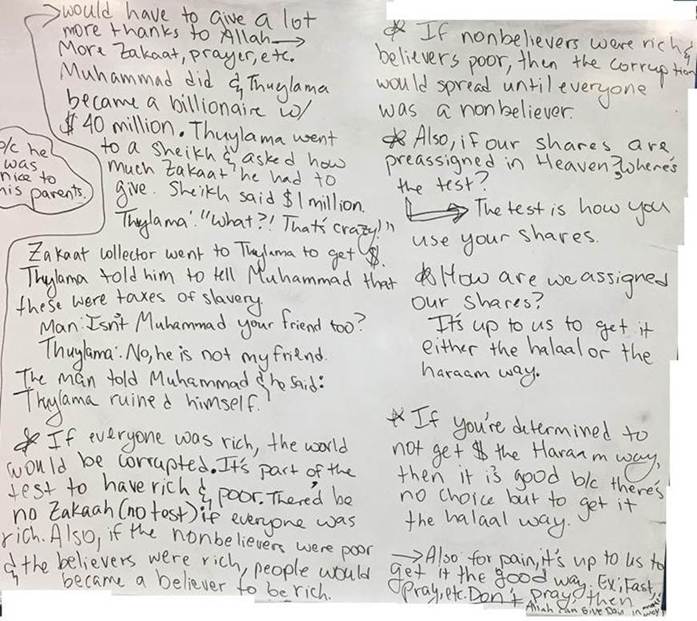 would have to give a lot
more thanks to Allah →
More Zakaat, prayer, etc.
Muhammad did & Thuylama
became a billionaire w/
$40 million. Thuylama went
to a Sheikh & asked how
much Zakaat he had to
give. Sheikh said $1 million.
Thylama: "What?! That's crazy!"
b/c he
was
nice to
his parents.
Zakaat collector went to Thylama to get $.
Thylama told him to tell Muhammad that
these were taxes of slavery.
Man: Isn't Muhammad your friend too?
Thuylama: No, he is not my friend.
The man told Muhammad & he said:
Thylama ruined himself.
* If everyone was rich, the world
would be corrupted. It's part of the
test to have rich & poor. There'd be
no Zakaah (no test) if everyone was
rich. Also, if the nonbelievers were poor
& the believers were rich, people would
became a believer to be rich.
* If nonbelievers were rich &
believers poor, then the corruption
would spread until everyone
was a nonbeliever.
* Also, if our shares are
preassigned in Heaven, where's
the test?
→ The test is how you
use your shares.
* How are we assigned
our shares?
It's up to us to get it
either the halaal or the
haraam way.
* If you're determined to
not get $ the Haraam way,
then it is good b/c there's
no choice but to get it
the halaal way.
→ Also for pain, it's up to us to
get it the good way. Ex: Fast,
pray, etc. Don't pray? then
Allah can give pain in way